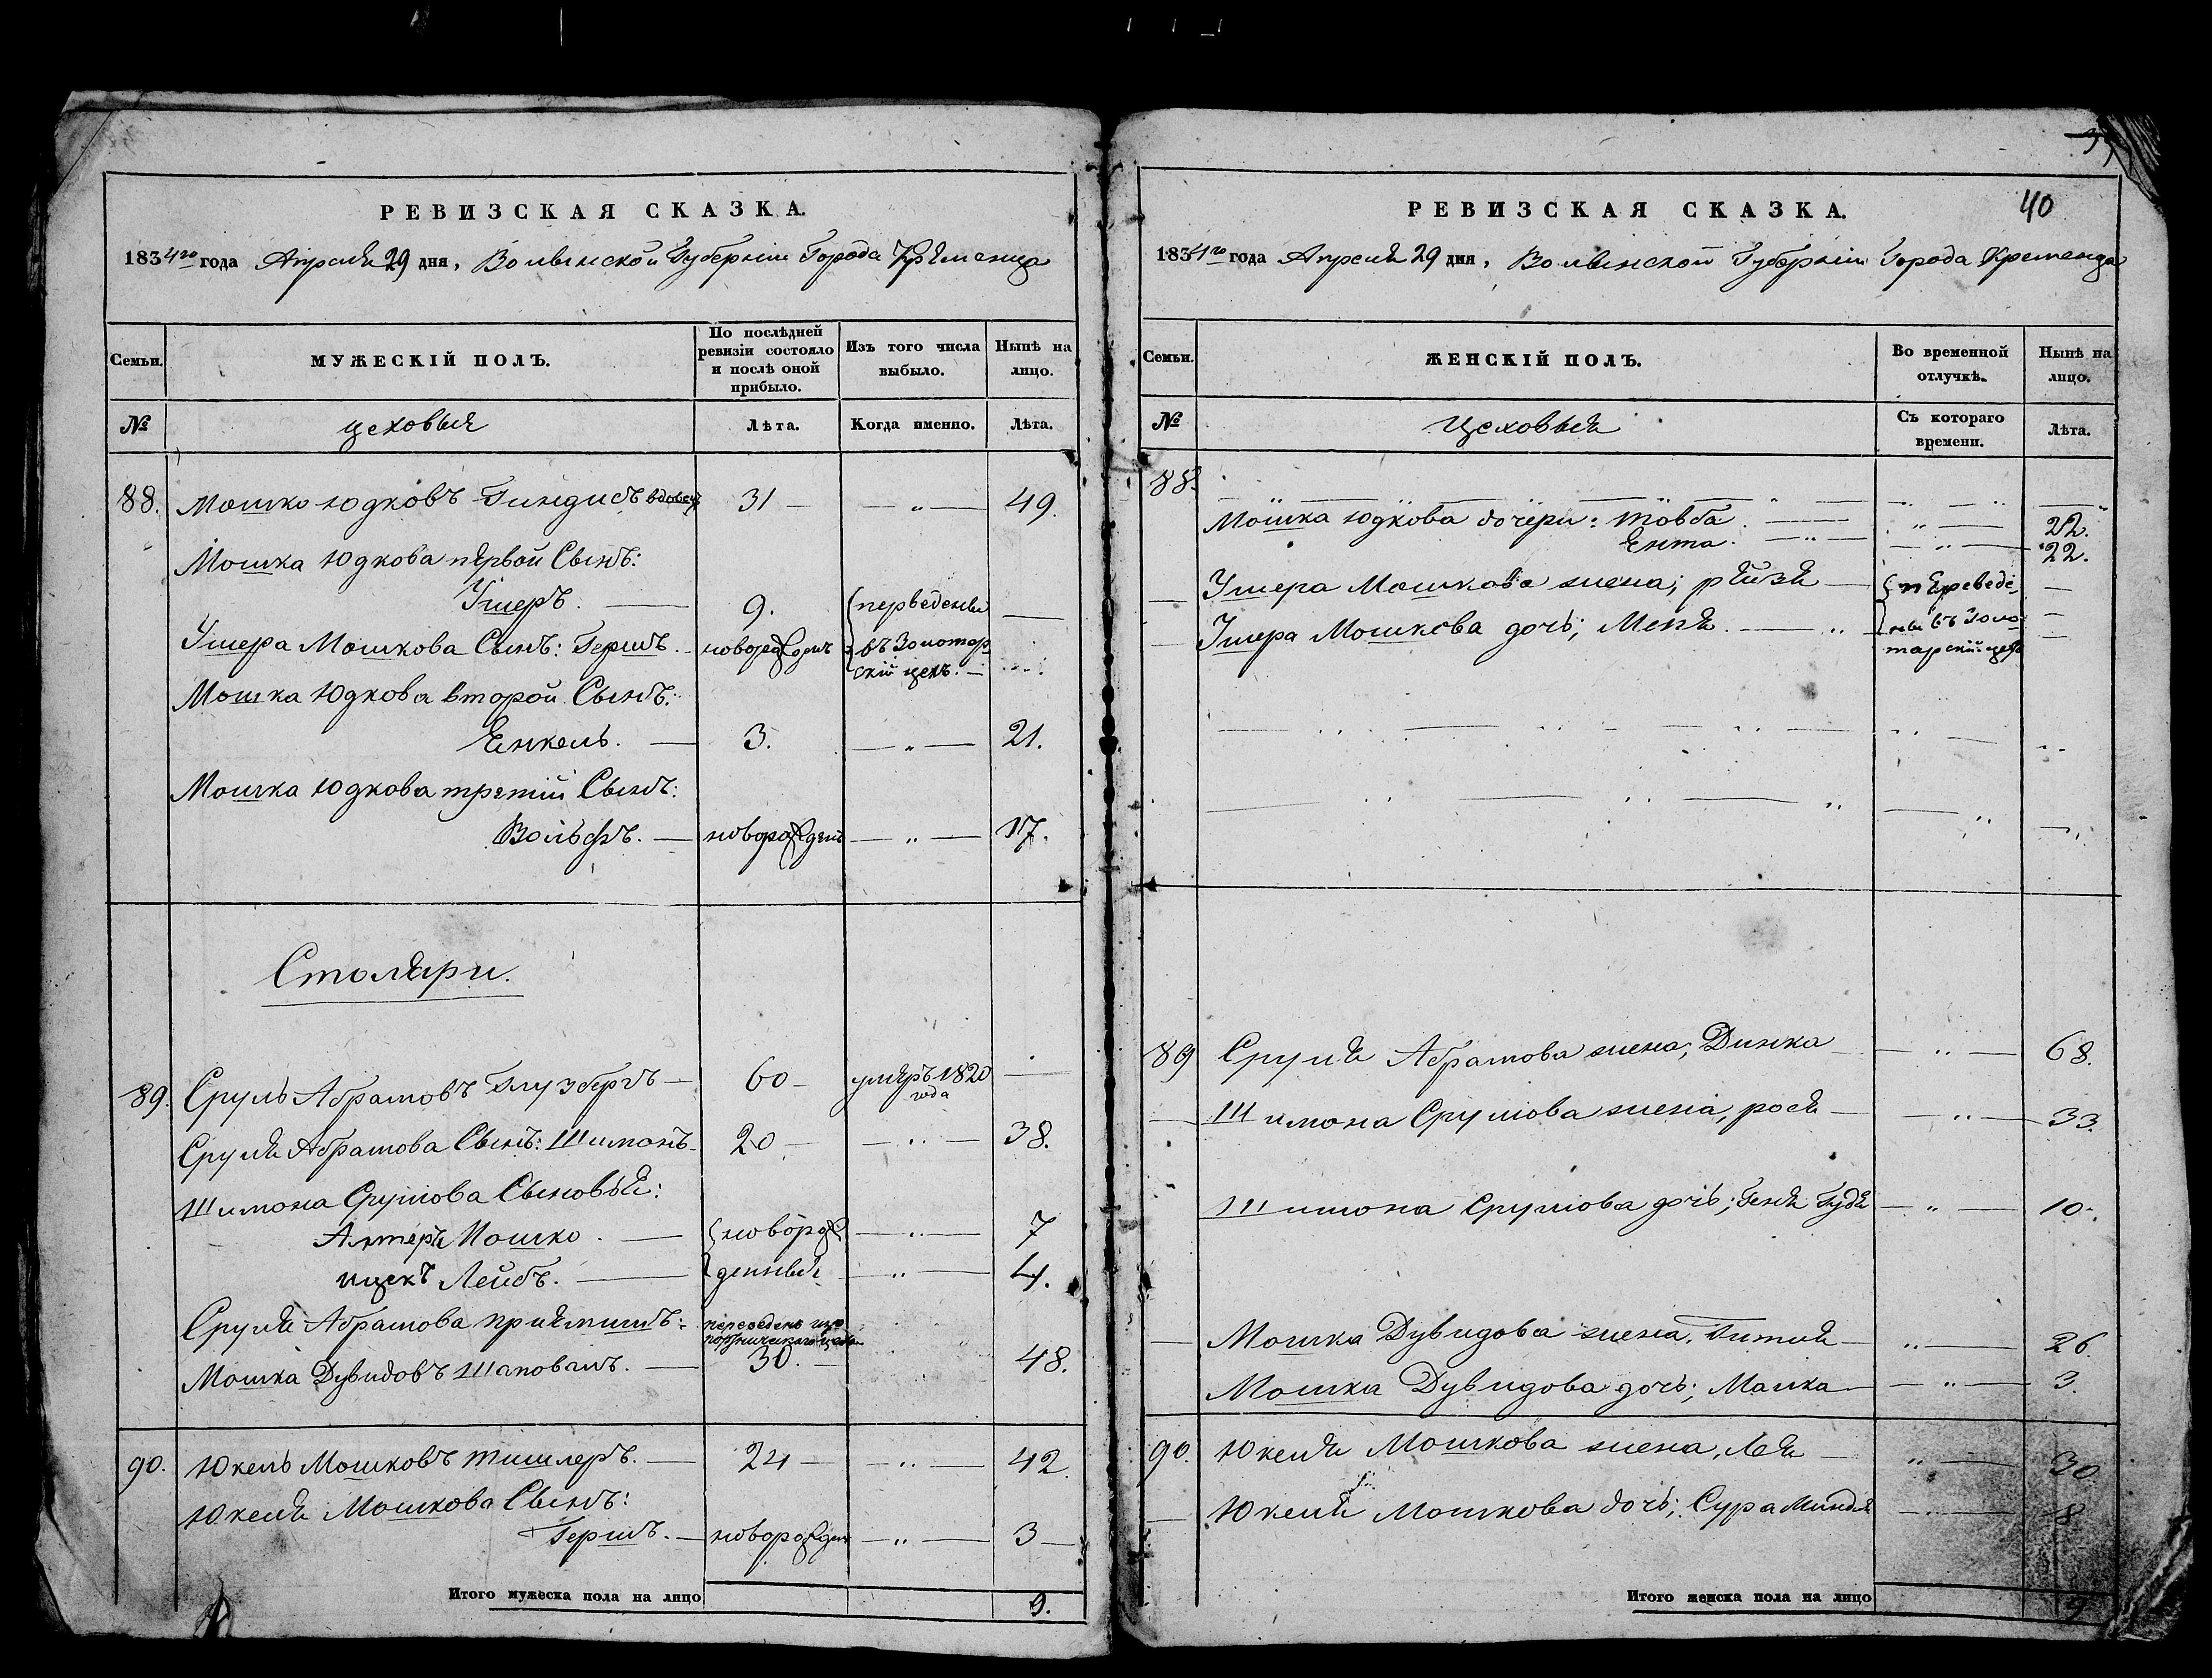 РЕВИЗСКАЯ СКАЗКА.
1834го года Апреля 29 дня, Волынской Губернии Города Кременца
Семьи.
МУЖЕСКІЙ ПОЛЪ.
По послѣдней ревизіи состояло и послѣ оной прибыло.
Изъ того числа выбыло.
Нынѣ на лицо.
№
цеховыя
Лѣта.
Когда именно.
Лѣта.
88. Мошко Юдковъ вдовец 31 — — „ — 49.
Мошка Юдкова первой Сынъ:
Ушеръ. — 9. переведены —
Ушера Мошкова Сынъ: Гершъ. новорожденъ въ Золотар
скій цехъ. —
Мошка Юдкова второй Сынъ:
Енкель. — 3. — „ — 21.
Мошка Юдкова третій Сынъ:
Вольфъ. — новорожденъ — „ — 17.
Столяри.
89. Сруль Абрамовъ Глузбергъ — 60 — умеръ 1820 —
года
Сруля Абрамова Сынъ: Шимонъ — 20 — — „ — 38.
Шимона Срулова Сыновья:
Алтеръ Мошко. — новорож — „ — 7
ицекъ Лейбъ. — денныя — „ — 4.
Сруля Абрамова приемишъ: переведенъ изъ
Мошка Дувидовъ Шаповалъ. — 30. — 48.
90. Юкель Мошковъ тишлеръ. — 24 — — „ — 42.
Юкеля Мошкова Сынъ:
Гершъ. — новорожден — „ — 3 —
Итого мужеска пола на лицо 9.
40
РЕВИЗСКАЯ СКАЗКА.
1834го года Апреля 29 дня, Волынской Губернии Города Кременца
Семьи.
ЖЕНСКІЙ ПОЛЪ.
Во временной отлучкѣ.
Нынѣ на лицо.
№
Цеховыя
Съ котораго времени.
Лѣта.
88.
Мошка Юдкова дочери: Товба. — „ — 22.
Ента. — „ — — „ — 22.
Ушера Мошкова жена; рейзя — переведе —
Ушера Мошкова дочь; Меня. — „ — ны въ Золо —
тарскій цехъ
89 Сруля Абрамова жена; Динка — — „ — 68.
Шимона Срулова жена, рося — — „ — 33.
Шимона Срулова дочь; Геня Гудя — „ — 10.
Мошка Дувидова жена, Гитля — „ — 26.
Мошка Дувидова дочь; Малка — — „ — 3.
90. Юкеля Мошкова жена, Лея — „ — 30
Юкеля Мошкова дочь; Сура Миндля — „ — 8
Итого женска пола на лицо 9